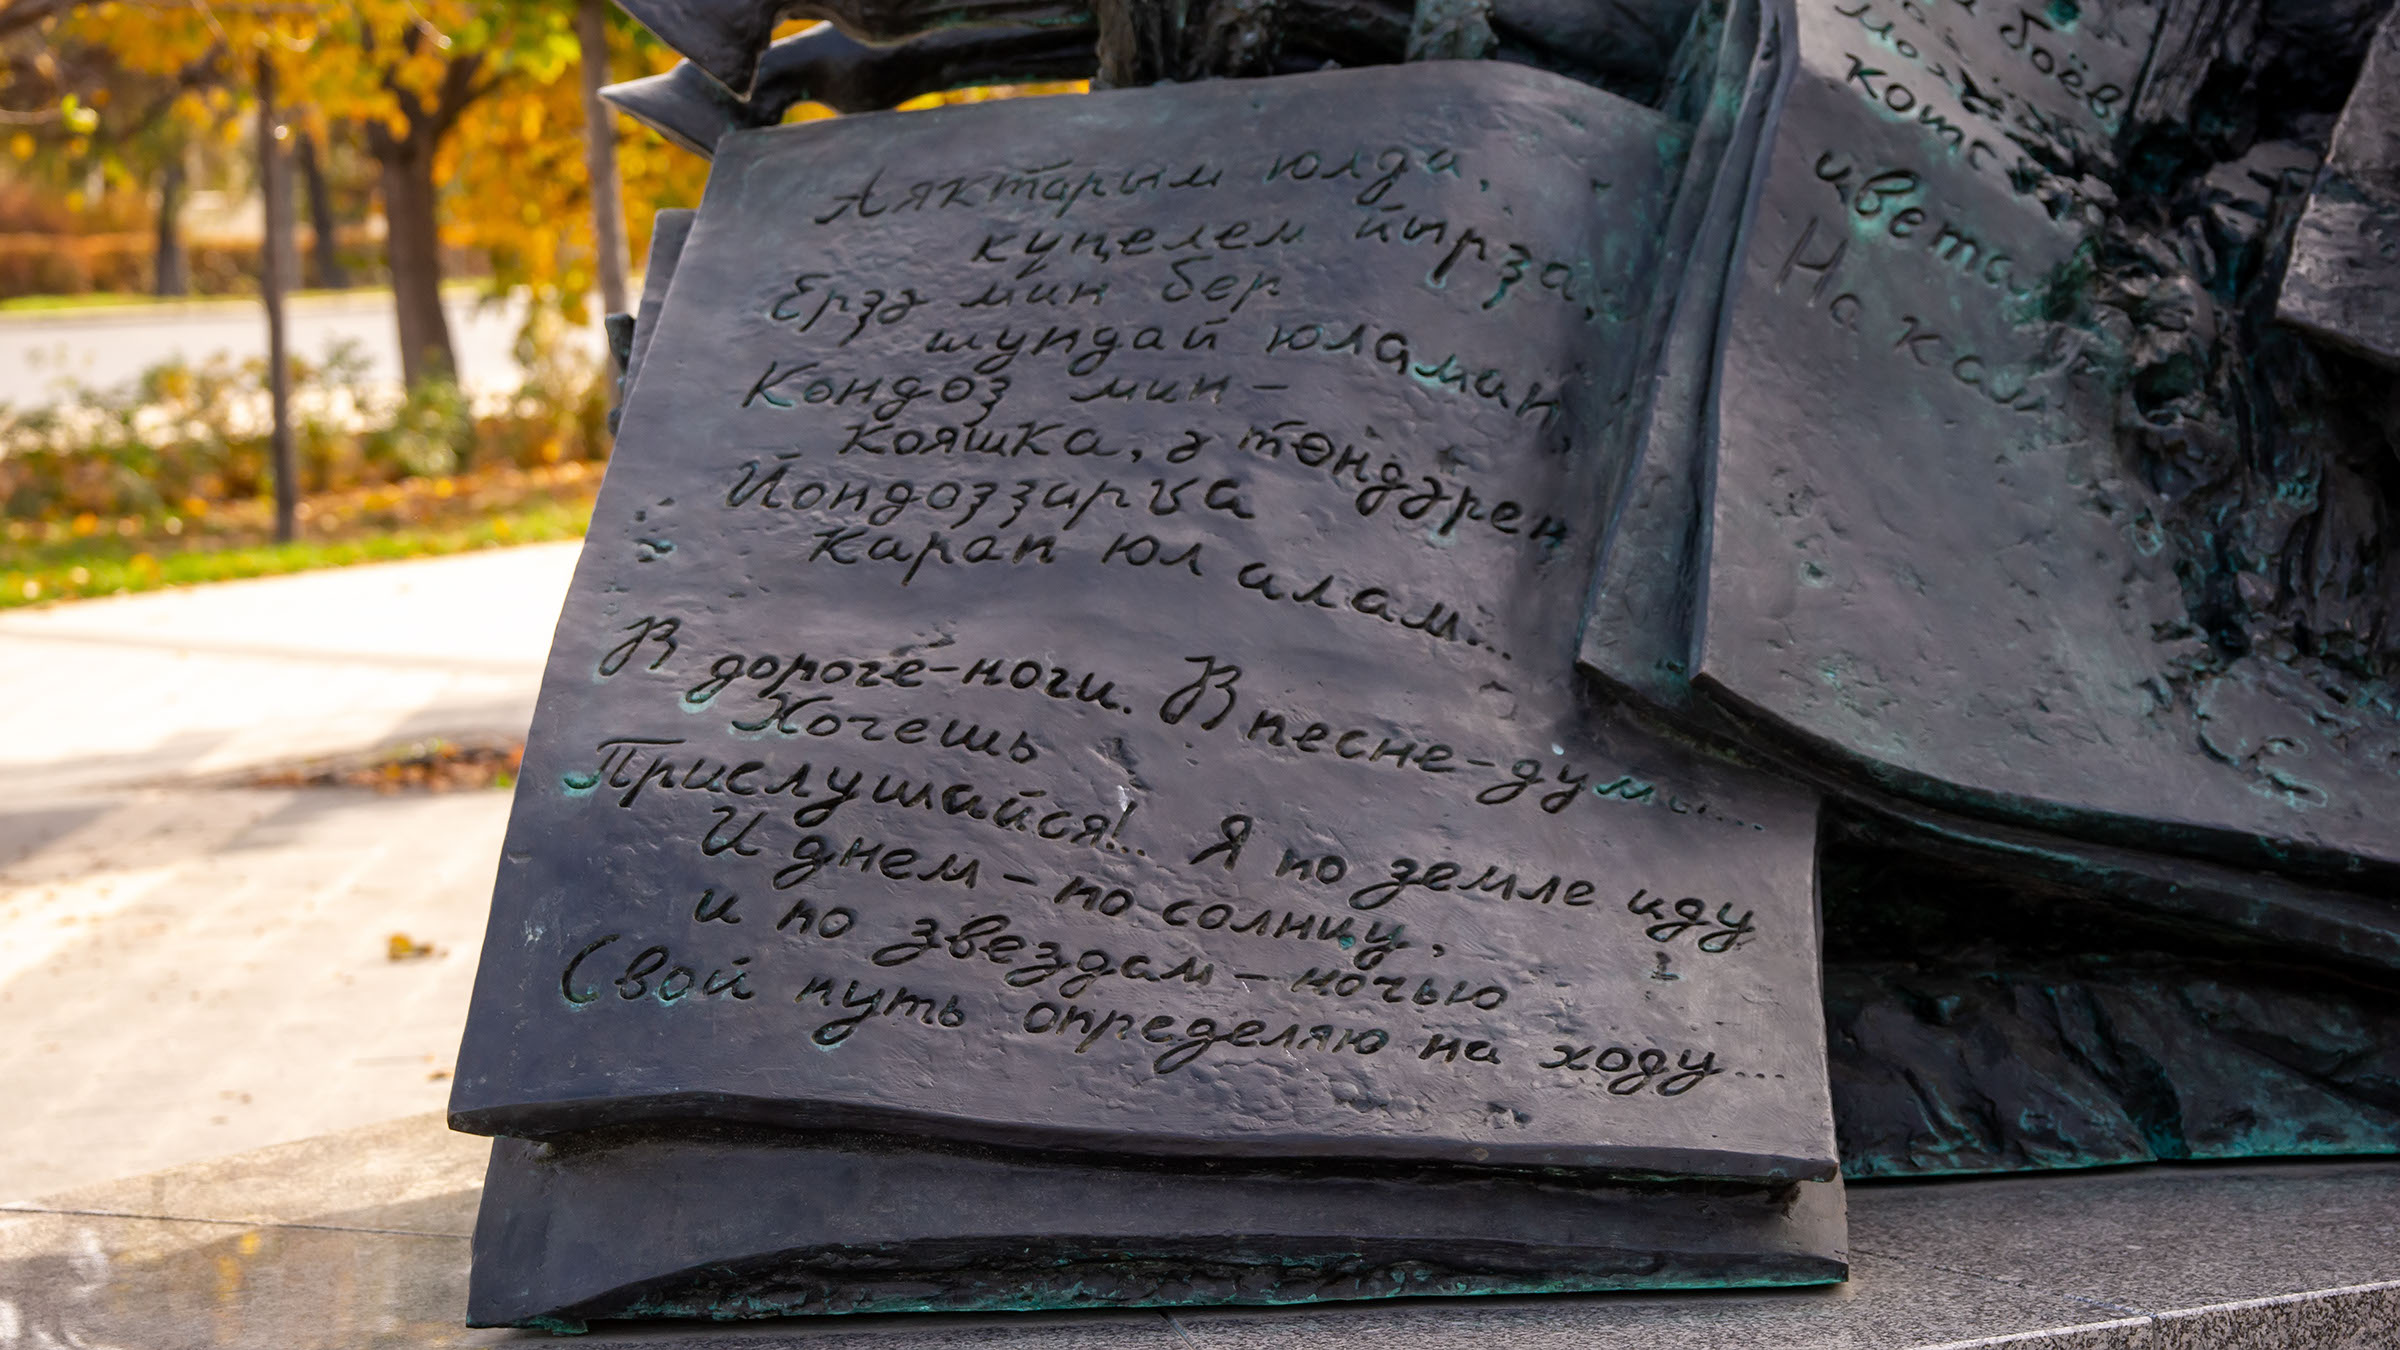 Аяктарым юлда,
күңелем йырҙа,
Ерҙә мин бер
шундай юламан,
Көндөҙ мин –
кояшка, ә төндәрен
Йондоҙҙарға
карап юл алам...
В дороге-ноги. В песне-думы...
Хочешь
Прислушайся!.. Я по земле иду
И днем – по солнцу,
и по звездам – ночью
Свой путь определяю на ходу...
боёв
цвета
На кам